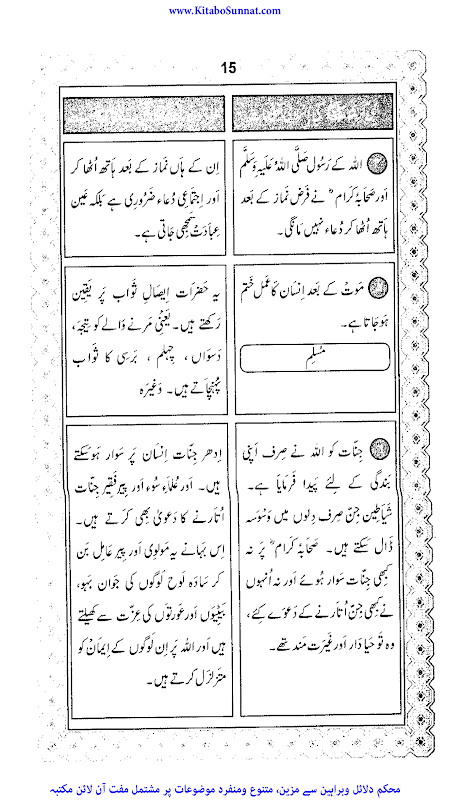 www.KitaboSunnat.com
15
اللہ کے رَسُول صَلَّی اللہُ عَلَیہِ وَسَلَّم
اَور صَحَابۂ کرَام ؓ نے فَرض نمَاز کے بَعد
ہَاتھ اُٹھا کر دُعَاء نہیں مَانگی۔
اِن کے ہَاں نمَاز کے بَعد ہَاتھ اُٹھا کر
اَور اِجتمَاعی دُعَاء ضَرُورِی ہے بَلکہ عَین
عِبَادَت سَمجھی جَاتی ہے۔
مَوتْ کے بَعد اِنسَان کا عَمَل خَتم
ہَو جَاتا ہے۔
مُسْلِم
یہ حَضرَات اِیصَالِ ثَوَاب پَر یَقِین
رَکھتے ہیں۔ یَعنِی مَرنے وَالے کو تِیجَہ،
دَسوَاں ، چِہلم ، بَرسِی کا ثَوَاب
پُہنچَاتے ہیں۔ وَغَیرَہ
جِنَّات کو اللہ نے صِرف اَپنِی
بَندگی کے لِئے پَیدا فَرمَایَا ہے۔
شَیَاطِین جِنّ صِرف دِلوں میں وَسْوَسہ
ڈَال سَکتے ہیں۔ صَحَابۂ کرَام ؓ پَر نَہ
کبھِی جِنَّات سَوار ہُوئے اَور نَہ اُنہوں
نے کبھِی جِنّ اُتَارنے کے دَعوَے کِئے،
وہ تَو حَیَا دَار اَور غَیرَت مَند تھے۔
اِدھر جِنَّات اِنسَان پَر سَوَار ہَو سَکتے
ہیں۔ اَور عُلمَاءِ سُوء اَور پِیر فَقِیر جِنَّات
اُتَارنے کا دَعویٰ بھِی کَرتے ہیں۔
اِس بہَانے یہ مَولوِی اَور پِیر عَامِل بَن
کر سَادَہ لَوح لَوگوں کی جَوَان بَہو،
بَیٹِیَوں اَور عَورتَوں کی عِزَّت سے کھیلتے
ہیں اَور اللہ پَر اِن لَوگوں کے اِیمَان کو
مُتزَلزِل کَرتے ہیں۔
محکم دلائل وبراہین سے مزین، متنوع ومنفرد موضوعات پر مشتمل مفت آن لائن مکتبہ